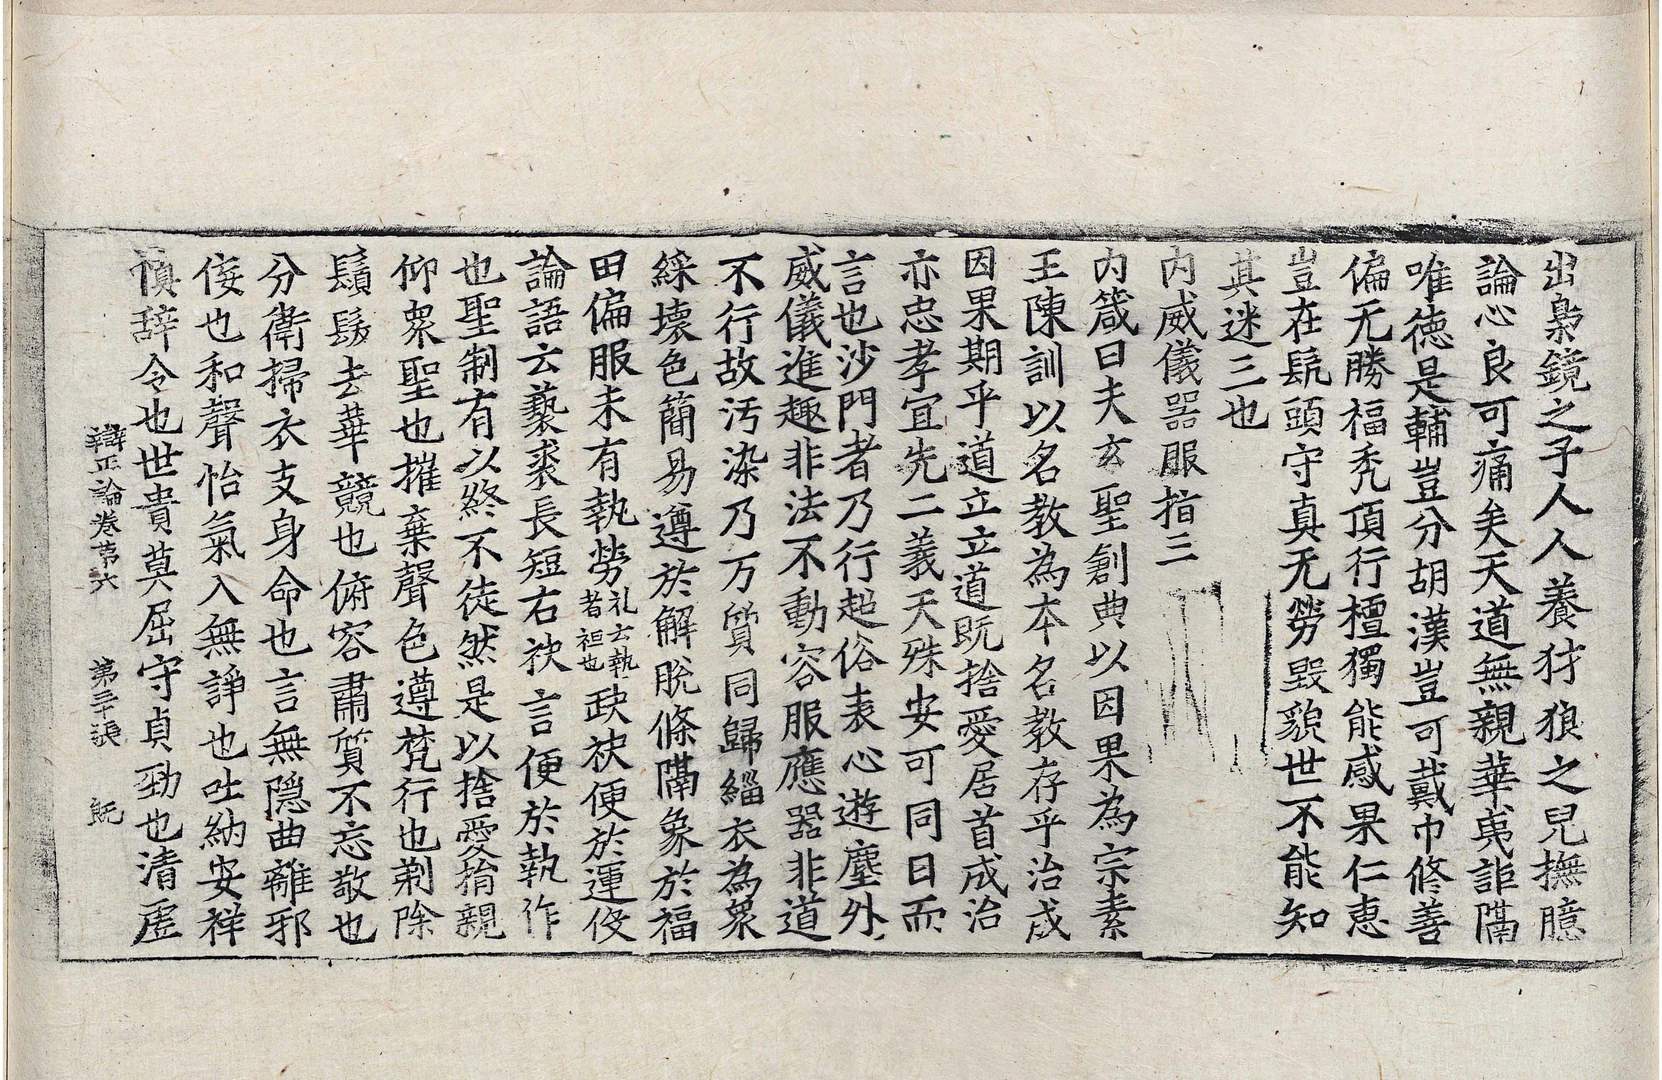 出梟鏡之子人人養犲狼之兒撫臆
論心良可痛矣天道無親華夷詎隔
唯德是輔豈分胡漢豈可戴巾修善
偏无勝福禿頂行檀獨能感果仁惠
豈在髡頭守真无勞毀貌世不能知
其迷三也
內威儀器服指三
內箴曰夫玄聖創典以因果為宗素
王陳訓以名教為本名教存乎治成
因果期乎道立立道既捨愛居首成治
亦忠孝宜先二義天殊安可同日而
言也沙門者乃行超俗表心遊塵外
威儀進趣非法不動容服應器非道
不行故汚染乃万質同歸緇衣為衆
綵壞色簡易遵於解脫條隔象於福
田偏服未有執勞礼云執者袒也𧙕袂便於運役
論語云䙝裘長短右袂言便於執作
也聖制有以終不徒然是以捨愛捐親
仰衆聖也摧棄聲色遵梵行也剃除
鬚髮去華競也俯容肅質不忘敬也
分衛掃衣支身命也言無隱曲離邪
佞也和聲怡氣入無諍也吐納安祥
慎辞令也世貴莫屈守貞勁也清虛
辯正論卷第六　第三十張　旣